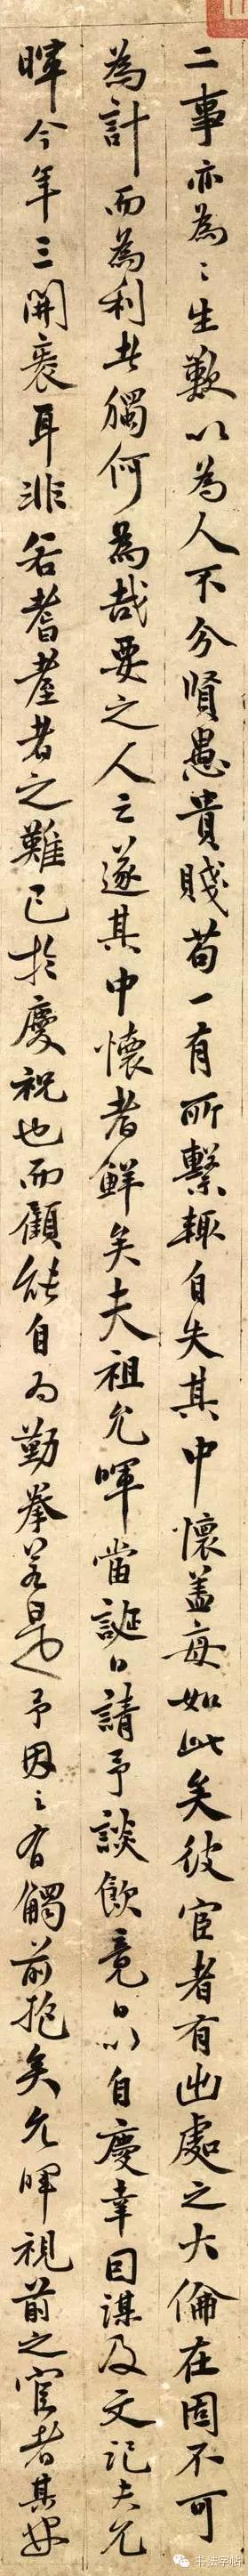 二事亦為〻生歎以為人不分賢愚貴賤苟一有所繫輒自失其中懷盖每如此矣彼宦者有出處之大倫在固不可
為計而為利者獨何為哉要之人之遂其中懷者鮮矣夫祖允暉當誕日請予談飲竟日以自慶幸因謀及文記夫允
暉今年三開袠耳非若耆耋者之難已於慶祝也而顧能自為勤拳若是予因之有觸前抱矣允暉視前之宦者其
书法字帖